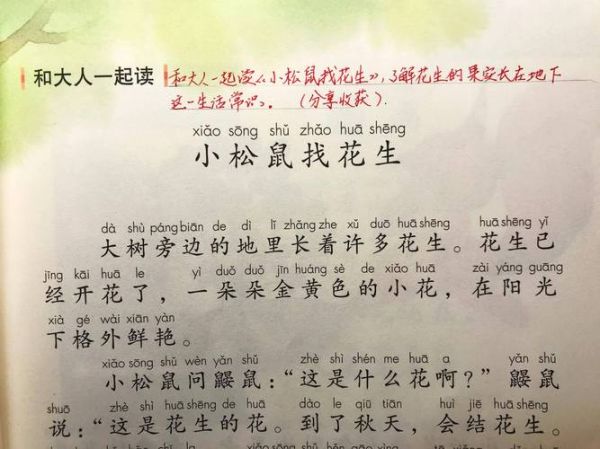 和大人一起读 和大人一起读《小松鼠找花生》，了解花生的果实长在地下
这一生活常识。（分享收获）.
xiǎo sōng shǔ zhǎo huā shēng
小松鼠找花生
dà shù páng biān de dì lǐ zhǎng zhe xǔ duō huā shēng huā shēng yǐ
大树旁边的地里长着许多花生。花生已
jīng kāi huā le yì duǒ duǒ jīn huáng sè de xiǎo huā zài yáng guāng
经开花了，一朵朵金黄色的小花，在阳光
xià gé wài xiān yàn
下格外鲜艳。
xiǎo sōng shǔ wèn yǎn shǔ zhè shì shén me huā a yǎn shǔ
小松鼠问鼹鼠：“这是什么花啊？”鼹鼠
shuō zhè shì huā shēng de huā dào le qiū tiān huì jiē huā shēng
说：“这是花生的花。到了秋天，会结花生。